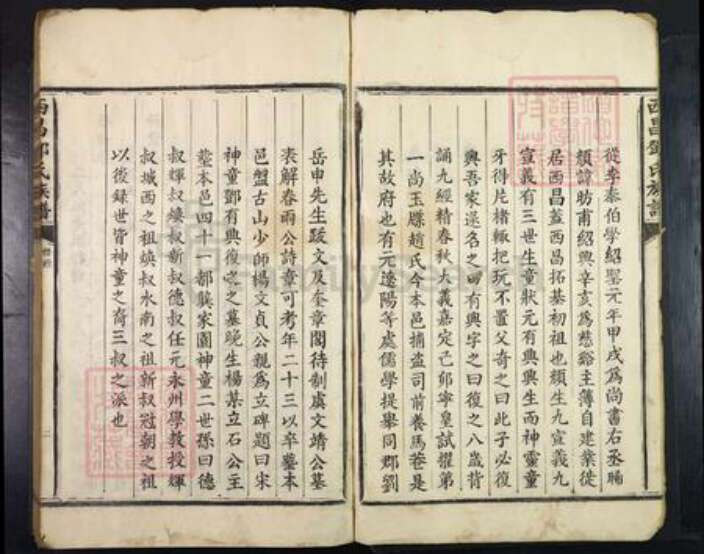 西昌鄧氏族譜
從李泰伯學紹聖元年甲戌為尚書右丞晡
頎諱昉甫紹興辛亥為慈谿主簿自建業徙
居西昌蓋西昌拓基初祖也頎生九宣義九
宣義有三世生童狀元有興興生而神靈童
牙得片楮輒把玩不置父奇之曰此子必復
興吾家遂名之曰有興字之曰復之八歲背
誦九經精春秋大義嘉定己卯寧皇試擢第
一尚玉牒趙氏今本邑捕盜司前養馬巷是
其故府也有元遼陽等處儒學提舉同郡劉
岳申先生跋文及奎章閣待制虞文靖公墓
表解春雨公詩章可考年二十三以卒塟本
邑盤古山少師楊文貞公親為立碑題曰宋
神童鄧有興復之之墓晚生楊某立石公主
塟本邑四十一都龔家園神童二世孫曰德
叔輝叔煥叔新叔德叔任元永州學教授輝
叔城西之祖煥叔水南之祖新叔冠朝之祖
以後録世皆神童之裔三叔之派也
西昌鄧氏族譜
二